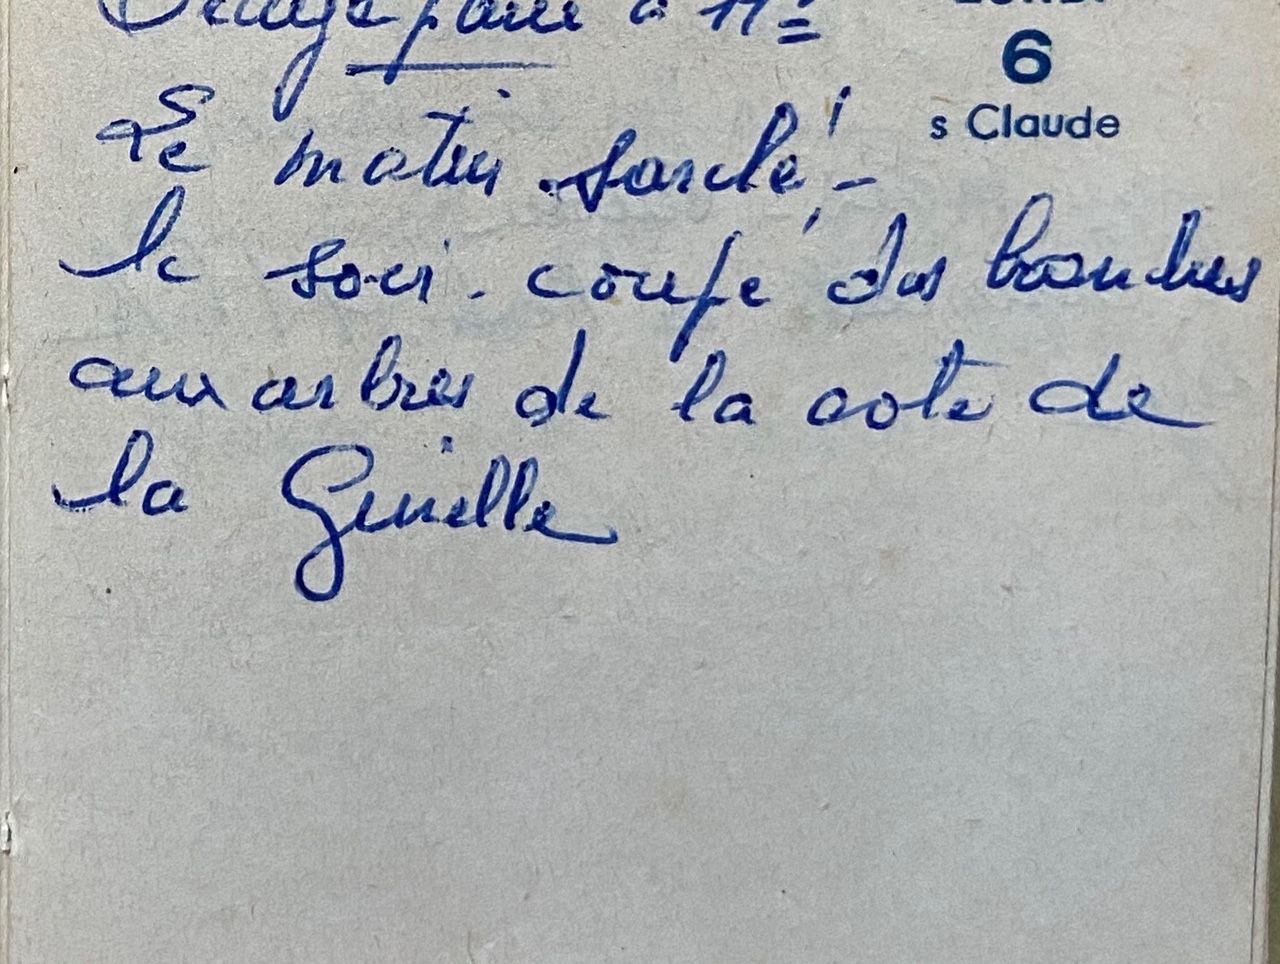 à 11h
LUNDI
6
s Claude
Le matin sarclé -
le soir. coupé des branches
aux arbres de la cote de
la Ginelle